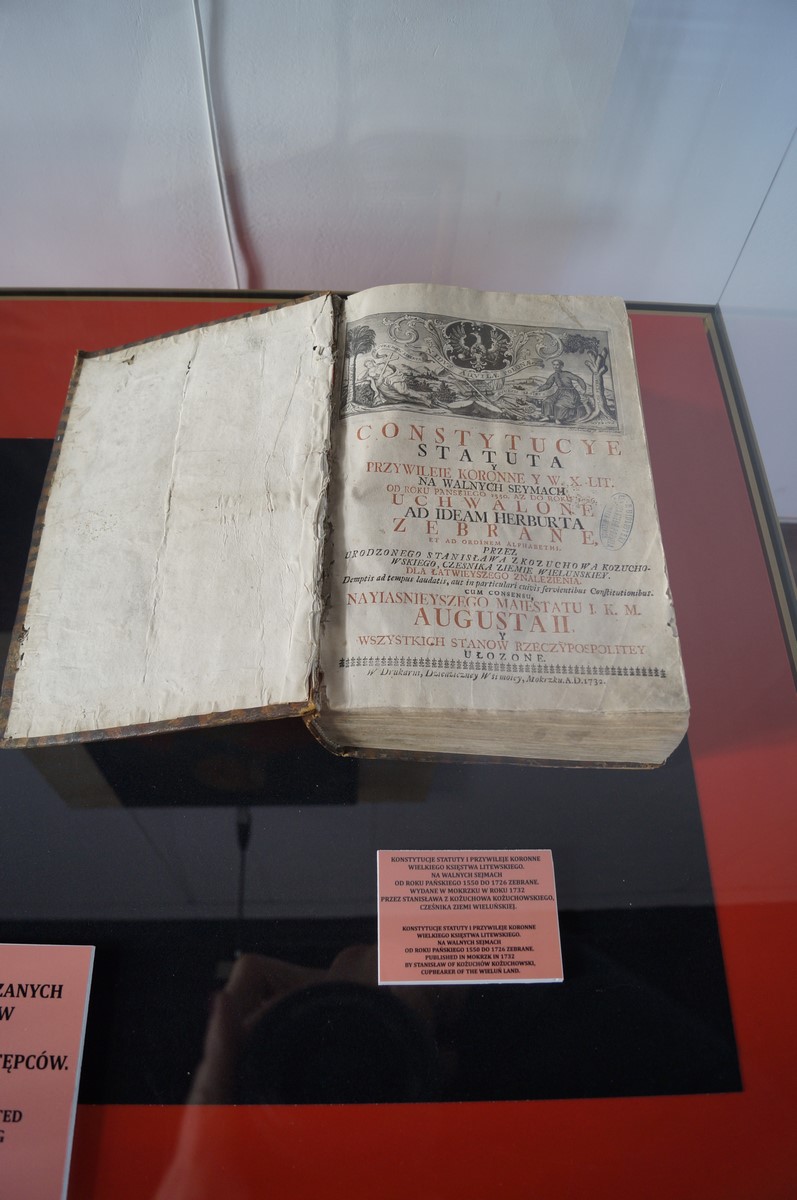 CONSTYTUCYE
STATUTA
Y
PRZYWILEIE KORONNE Y W. X. LIT.
NA WALNYCH SEYMACH
OD ROKU PANSKIEGO 1550. AZ DO ROKU
UCHWALONE,
AD IDEAM HERBURTA
ZEBRANE,
ET AD ORDINEM ALPHABETHI.
PRZEZ
URODZONEGO STANISŁAWA Z KOZUCHOWA KOZUCHO-
WSKIEGO, CZESNIKA ZIEMIE WIELUNSKIEY.
DLA ŁATWIEYSZEGO ZNALEZIENIA.
Demptis ad tempus laudatis, aut in particulari cuivis servientibus Constitutionibus.
CUM CONSENSU,
NAYIASNIEYSZEGO MAIESTATU I. K. M.
AUGUSTA II.
Y
WSZYSTKICH STANOW RZECZYPOSPOLITEY
UŁOZONE.
W Drukarni, Mokrzku. A.D. 1732.
KONSTYTUCJE STATUTY I PRZYWILEJE KORONNE
WIELKIEGO KSIĘSTWA LITEWSKIEGO.
NA WALNYCH SEJMACH
OD ROKU PAŃSKIEGO 1550 DO 1726 ZEBRANE.
WYDANE W MOKRZKU W ROKU 1732
PRZEZ STANISŁAWA Z KOŻUCHOWA KOŻUCHOWSKIEGO,
CZEŚNIKA ZIEMI WIELUŃSKIEJ.
KONSTYTUCJE STATUTY I PRZYWILEJE KORONNE
WIELKIEGO KSIĘSTWA LITEWSKIEGO.
NA WALNYCH SEJMACH
OD ROKU PAŃSKIEGO 1550 DO 1726 ZEBRANE.
PUBLISHED IN MOKRZK IN 1732
BY STANISŁAW OF KOŻUCHÓW KOŻUCHOWSKI,
CUPBEARER OF THE WIELUŃ LAND.
ZANYCH
W
TĘPCÓW.
TED
G